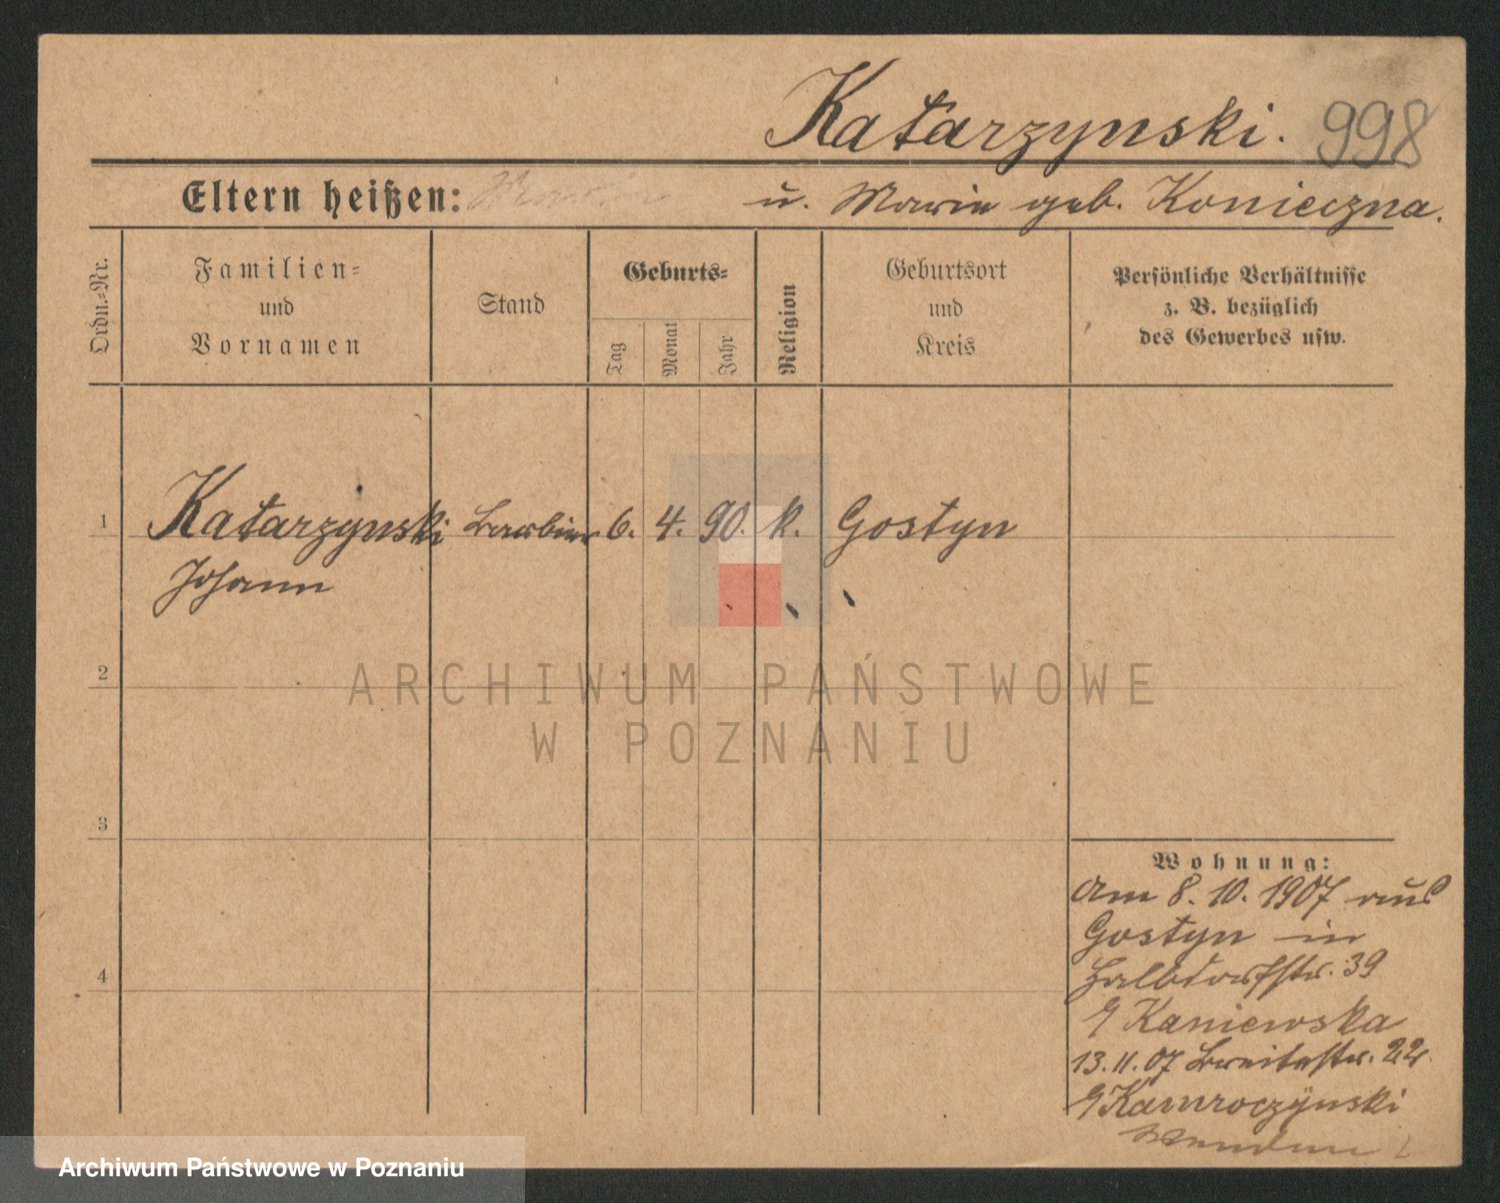 Katarzynski. 998
Eltern heißen: u. Marie geb. Konieczna.
Ordn.-Nr.
Familien-
und
Vornamen
Stand
Geburts-
Tag
Monat
Jahr
Religion
Geburtsort
und
Kreis
Persönliche Verhältnisse
z. B. bezüglich
des Gewerbes usw.
1 Katarzynski Barbier 6. 4. 90. k. Gostyn
Johann
ARCHIWUM PAŃSTWOWE
W POZNANIU
2
3
4
Wohnung:
Am 8. 10. 1907 aus
Gostyn in
Halbdorfstr. 39
Kaniewska
13. 11. 07 Breitestr. 22.
Archiwum Państwowe w Poznaniu